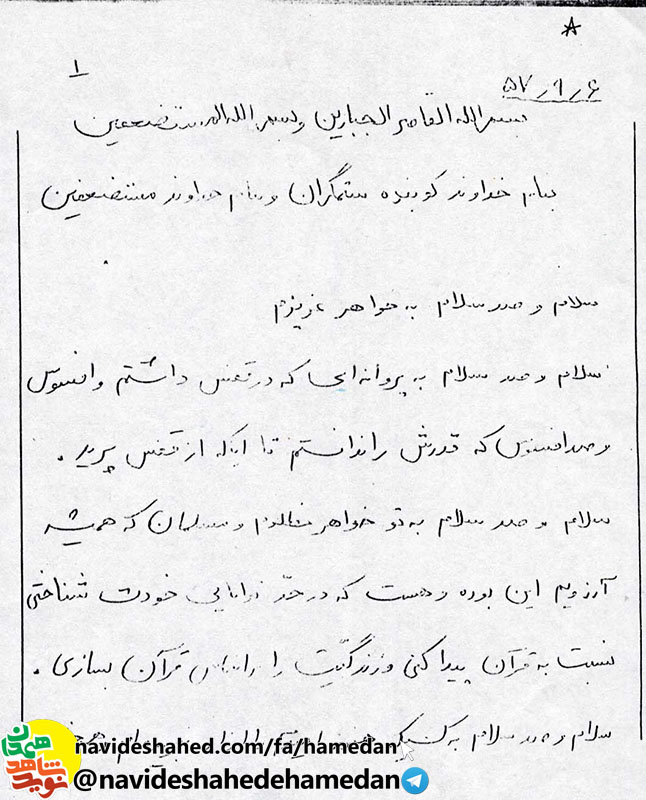 ۱
۵۷/۹/۶
بسم الله القاصم الجبارین و بسم الله المستضعفین
بنام خداوند کوبنده ستمگران و بنام خداوند مستضعفین
سلام و صد سلام به خواهر عزیزم
سلام و صد سلام به پروانه‌ای که در قفس داشتم و افسوس
و صد افسوس که قدرش را ندانستم تا اینکه از قفس پرید .
سلام و صد سلام به تو خواهر مظلوم و مسلمان که همیشه
آرزویم این بوده و هست که در حد توانایی خودت شناختی
نسبت به قرآن پیدا کنی و زندگیت را بر اساس قرآن بسازی .
سلام و صد سلام به کسیکه
navideshahed.com/fa/hamedan
@navideshahedehamedan
نوید شاهد همدان